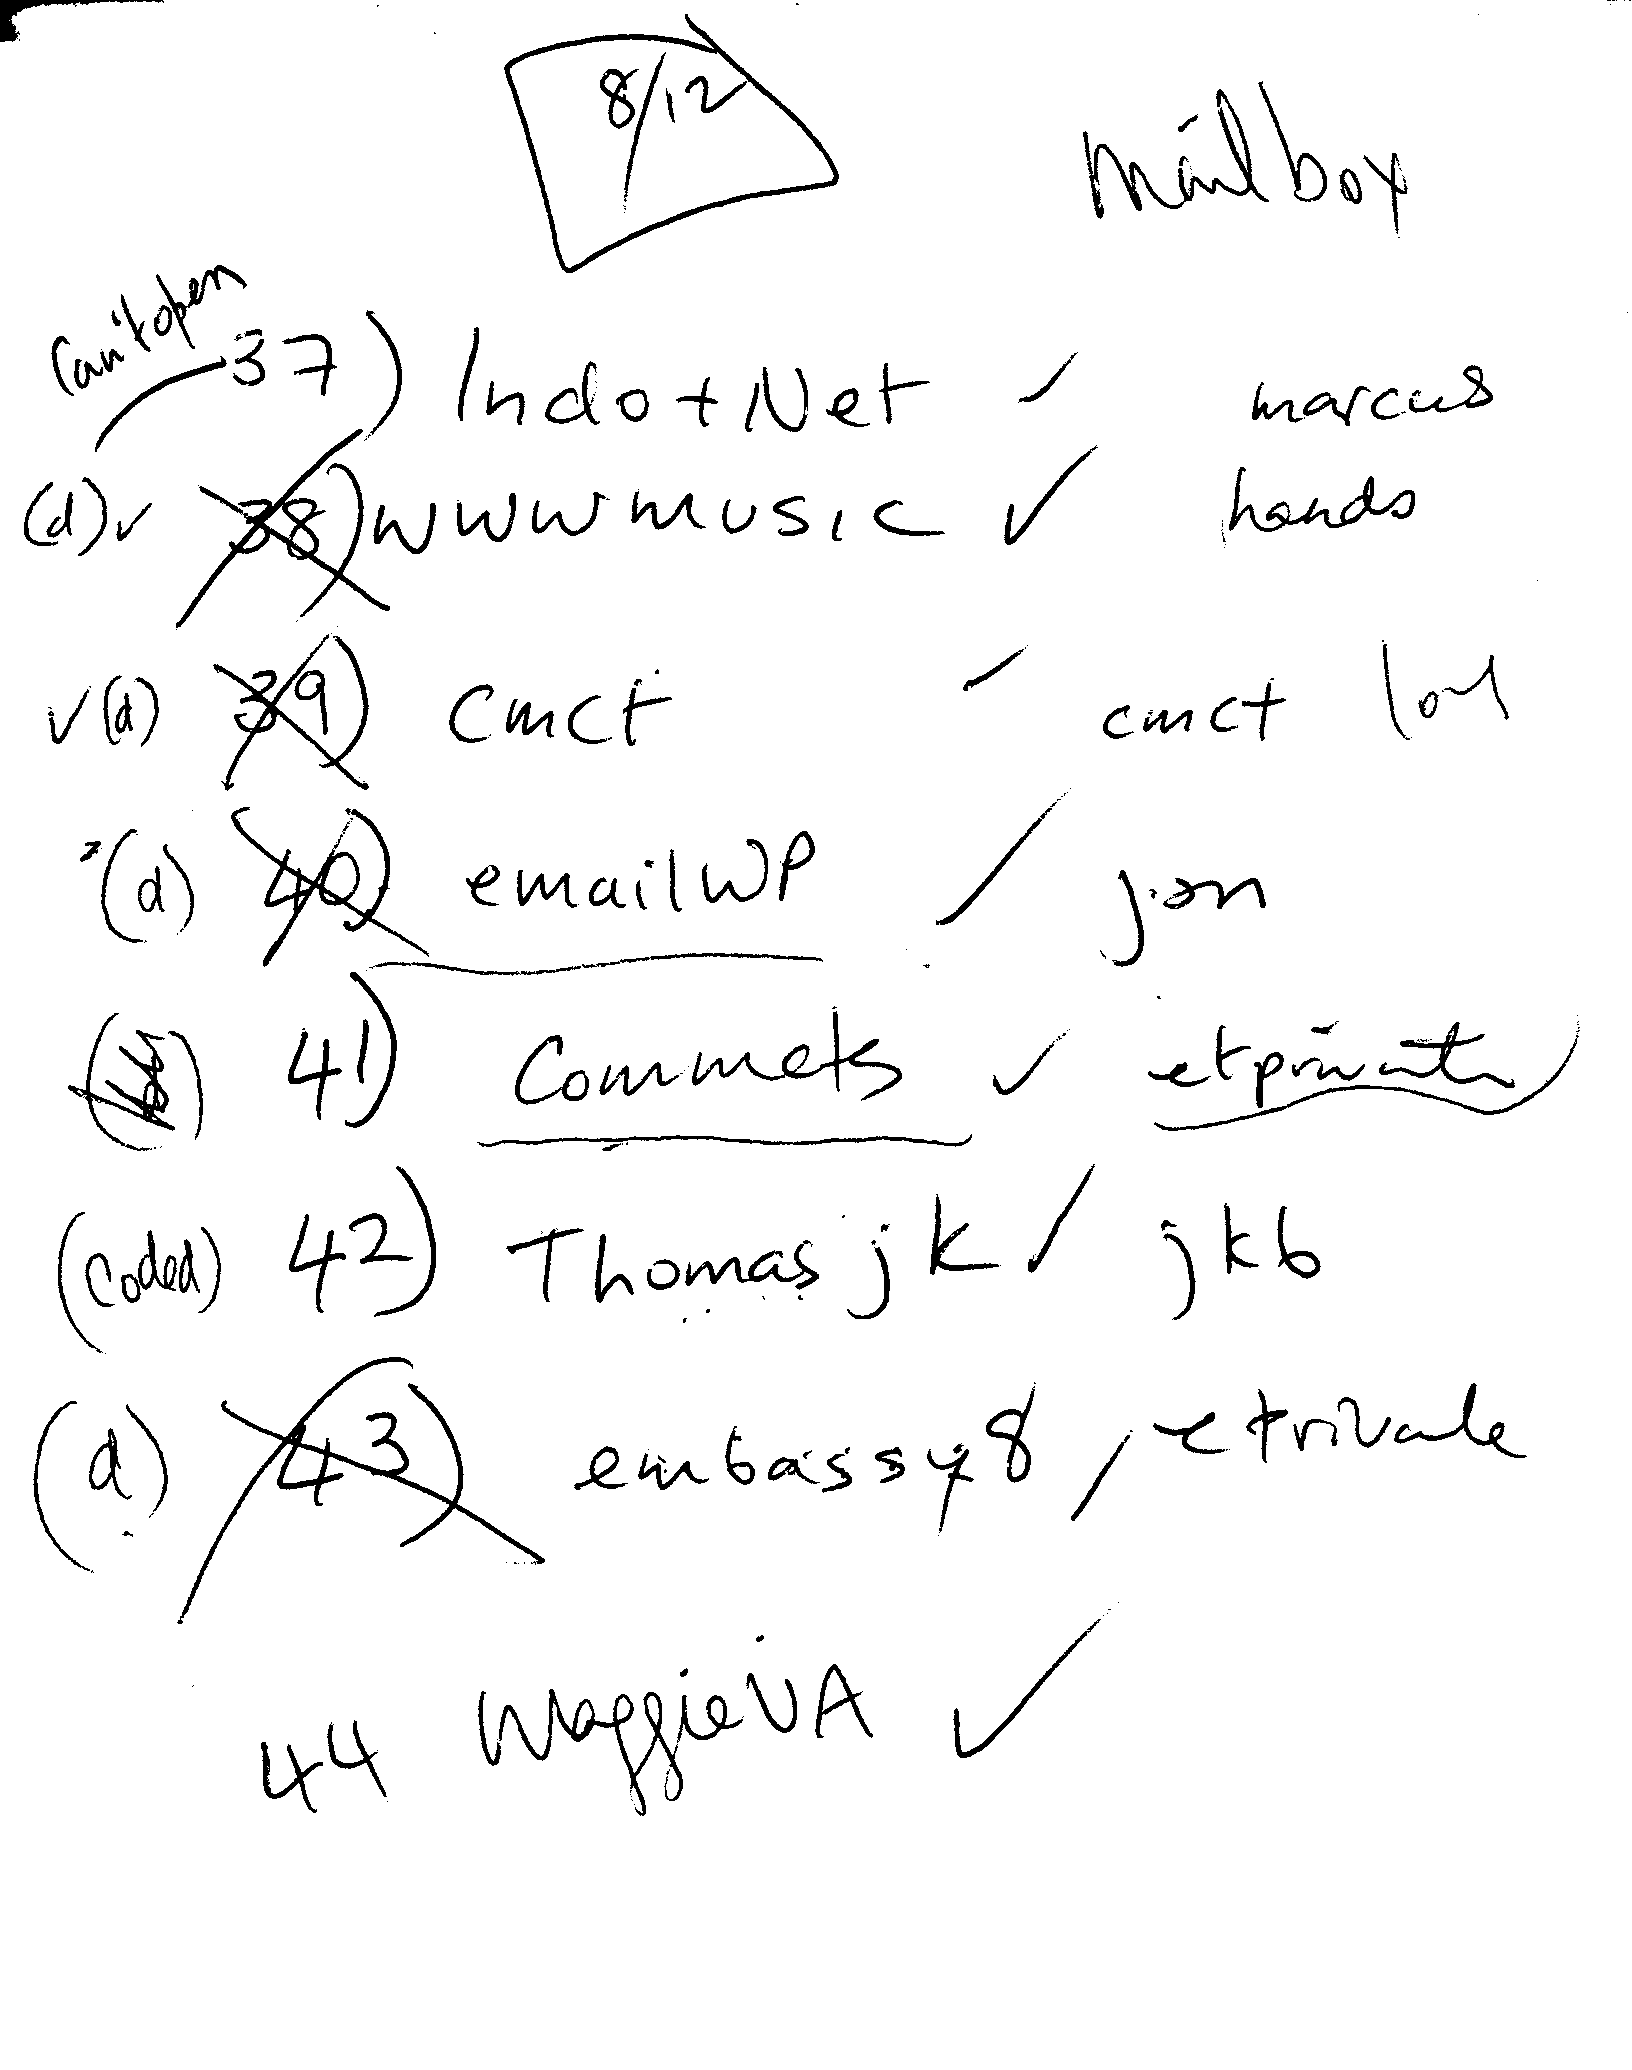 8/12
mailbox
Can't open
37) Indo+Net ✓ marcus
(d)✓ 38) wwwmusic ✓ hands
✓(d) 39) cmct ✓ cmct
(d) 40) emailWP ✓ jon
41) Commets ✓ etprivate
(coded) 42) Thomas jk ✓ jkb
(d) 43) embassy8 / etrivale
44 MaggieVA ✓